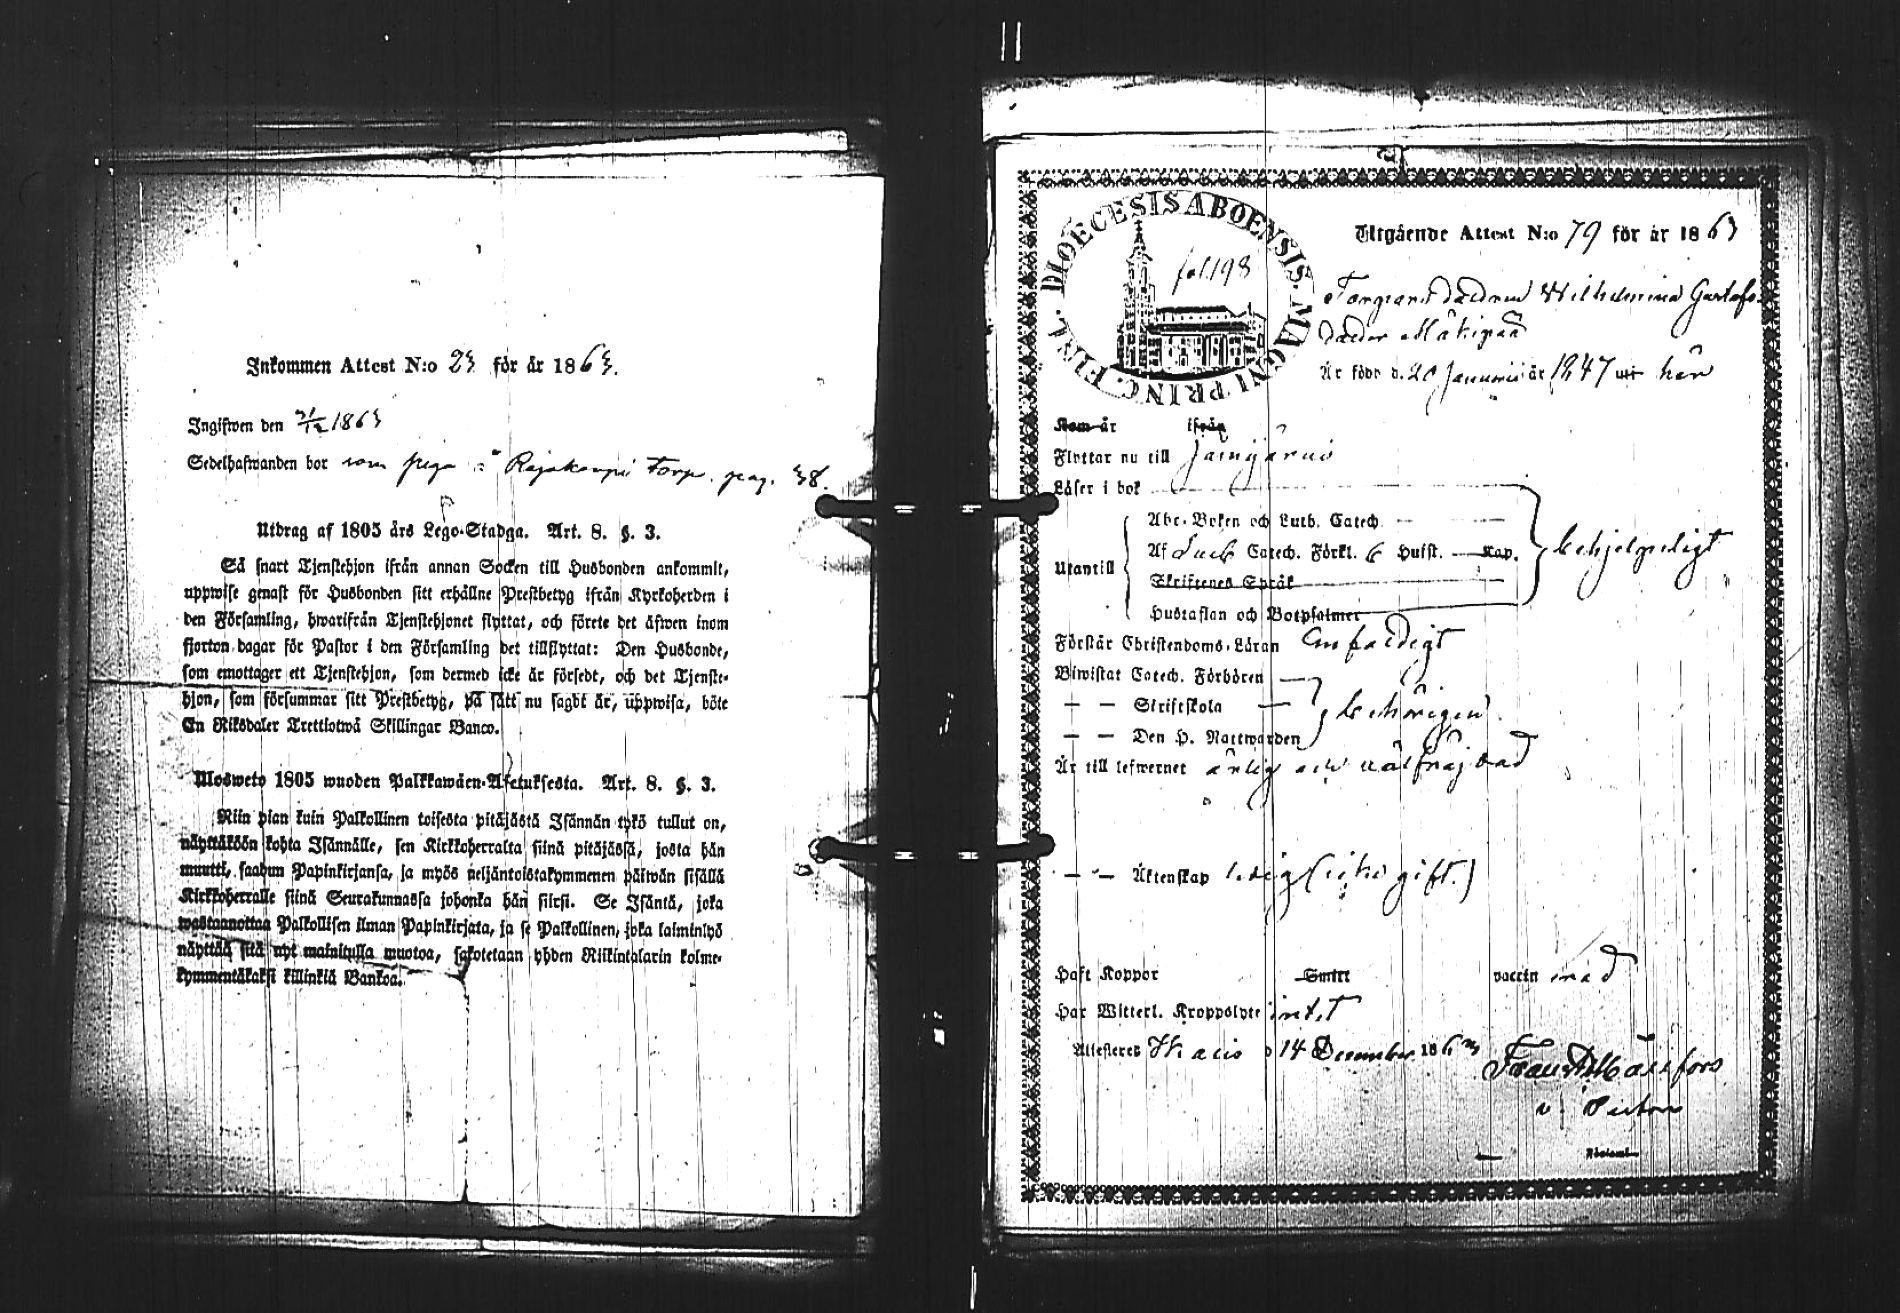 Inkommen Attest N:o 23 för år 1863.
Ingifwen den 21/12 1863
Sedelhafwanden bor som piga i Rajakorpi torp. pag. 38.
Utdrag af 1805 års Lego-Stadga. Art. 8. §. 3.
Så snart Tjenstehjon ifrån annan Socken till Husbonden ankommit,
uppwise genast för Husbonden sitt erhållne Prestbetyg ifrån Kyrkoherden i
den Församling, hwarifrån Tjenstehjonet flyttat, och förete det äfwen inom
fjorton dagar för Pastor i den Församling det tillflyttat: Den Husbonde,
som emottager ett Tjenstehjon, som dermed icke är försedt, och det Tjenste-
hjon, som försummar sitt Prestbetyg, på sätt nu sagdt är, uppwisa, böte
En Riksdaler Trettiotwå Skillingar Banco.
Ulosweto 1805 wuoden Palkkawäen-Asetuksesta. Art. 8. §. 3.
Niin pian kuin Palkollinen toisesta pitäjästä Isännän tykö tullut on,
näyttäköön kohta Isännälle, sen Kirkkoherralta siinä pitäjässä, josta hän
muutti, saadun Papinkirjansa, ja myös neljäntoistakymmenen päiwän sisällä
Kirkkoherralle siinä Seurakunnassa johonka hän siirsi. Se Isäntä, joka
wastaanottaa Palkollisen ilman Papinkirjata, ja se Palkollinen, joka laiminlyö
näyttää sitä nyt mainitulla muotoa, sakotetaan yhden Riikintalarin kolme-
kymmentäkaksi killinkiä Bankoa.
DIOECESIS ABOENSIS. MAGNI PRINC. FINL.
fol. 198
Utgående Attest N:o 79 för år 1863
Torpare dottren Wilhelmina Gustafs-
dotter Mäkipää
Är född d. 20 Januarii år 1847 uti här
Kom år ifrån
Flyttar nu till Jämijärvi
Läser i bok
Utantill
Abc-Boken och Luth. Catech.
Af Sveb. Catech. Förkl. 6 Hufst. Kap.
Skriftenes Språk
Hustaflan och Botpsalmer
behjelpeligt
Förstår Christendoms-Läran Enfaldigt
Biwistat Catech. Förhören
— — Skriftskola
— — Den H. Nattwarden
behörigen
Är till lefwernet ärlig och välfräjdad
— — Äktenskap ledig (icke gift.)
Haft Koppor Smitt vaccin med
Har Witterl. Kroppslyte intet
Attesteres d 14 December 1863
v. Pastor